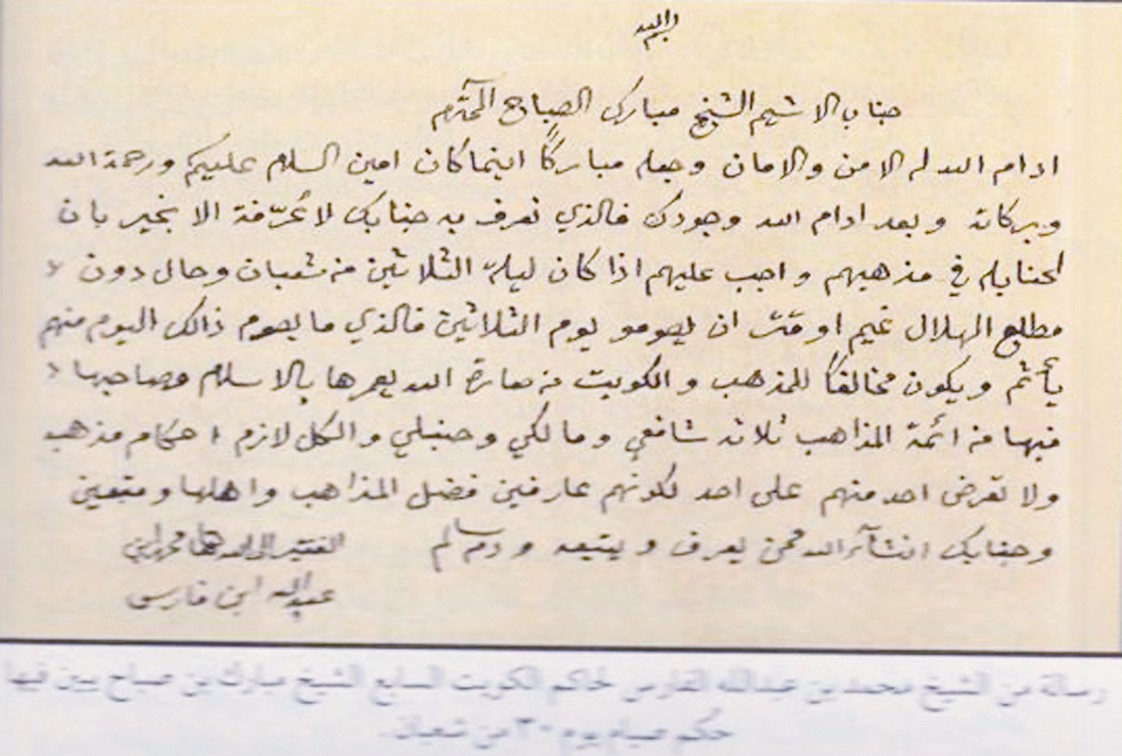 بسم الله
جناب الاشيم الشيخ مبارك الصباح المحترم
ادام الله له الامن والامان وجعله مباركًا اينما كان امين السلام عليكم ورحمة الله
وبركاته وبعد ادام الله وجودك فالذي نعرف به جنابك لا عُرّفت الا بخير بان
الحنابله في مذهبهم واجب عليهم اذا كان ليلة الثلاثين من شعبان وحال دون
مطلع الهلال غيم او قتر ان يصومو يوم الثلاثين فالذي ما يصوم ذالك اليوم منهم
يأثم ويكون مخالفًا للمذهب والكويت الله يعمرها بالاسلام وصاحبها
فيها من ائمة المذاهب ثلاثه شافعي ومالكي وحنبلي والكل لازم احكام مذهب
ولا تعرض احد منهم على احد لكونهم عارفين فضل المذاهب واهلها ومتبعين
وجنابك انشآء الله ممن يعرف ويتبعه ودم سالم
الفقير الى الله محمد ابن
عبدالله ابن فارس
رسالة من الشيخ محمد بن عبدالله الفارس لحاكم الكويت السابع الشيخ مبارك بن صباح يبين فيها
حُكم صيام يوم ٣٠ من شعبان.